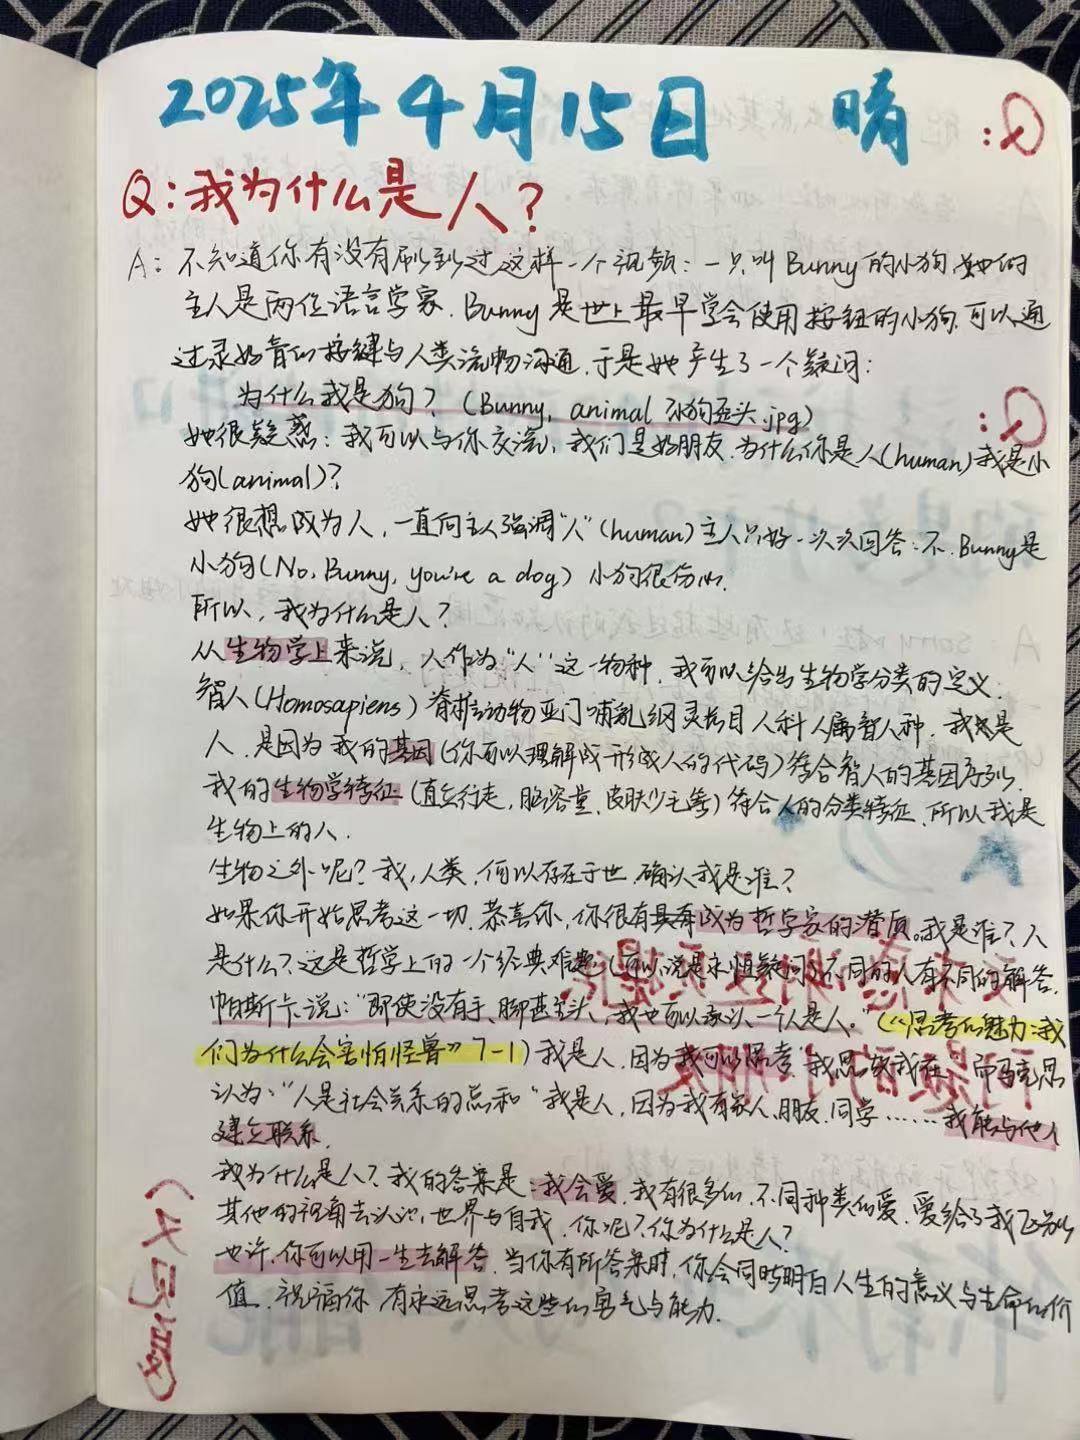 2025年4月15日 晴
Q:我为什么是人?
A:不知道你有没有刷到过这样一个视频:一只叫Bunny的小狗,她的
主人是两位语言学家.Bunny是世上最早学会使用按钮的小狗,可以通
过录好音的按键与人类流畅沟通,于是她产生了一个疑问:
为什么我是狗?(Bunny, animal 小狗歪头.jpg)
她很疑惑:我可以与你交流,我们是好朋友,为什么你是人(human)我是小
狗(animal)?
她很想成为人,一直向主人强调“人”(human)主人只好一次次回答:不,Bunny是
小狗(No, Bunny, you're a dog)小狗很伤心.
所以,我为什么是人?
从生物学上来说,人作为“人”这一物种,我可以给出生物学分类的定义,
智人(Homosapiens)脊椎动物亚门哺乳纲灵长目人科人属智人种,我是
人,是因为我的基因(你可以理解成形成人的代码)符合智人的基因序列,
我的生物学特征(直立行走,脑容量,皮肤少毛等)符合人的分类特征,所以我是
生物上的人.
生物之外呢?我,人类,何以存在于世,确认我是谁?
如果你开始思考这一切,恭喜你,你很有具有成为哲学家的潜质。我是谁?人
是什么?这是哲学上的一个经典难题(可以说是永恒疑问)不同的人有不同的解答.
帕斯卡说:“即使没有手、脚甚至头,我也可以承认一个人是人。”(《思考的魅力:我
们为什么会害怕怪兽》7-1)我是人,因为我可以思考“我思故我在”而马克思
认为:“人是社会关系的总和“我是人,因为我有家人、朋友、同学……我能与他人
建立联系.
我为什么是人?我的答案是:我会爱,我有很多的,不同种类的爱,爱给了我
其他的视角去认识,世界与自我,你呢?你为什么是人?
也许,你可以用一生去解答.当你有所答案时,你会同时明白人生的意义与生命的价
值.祝福你 有永远思考这些的勇气与能力.